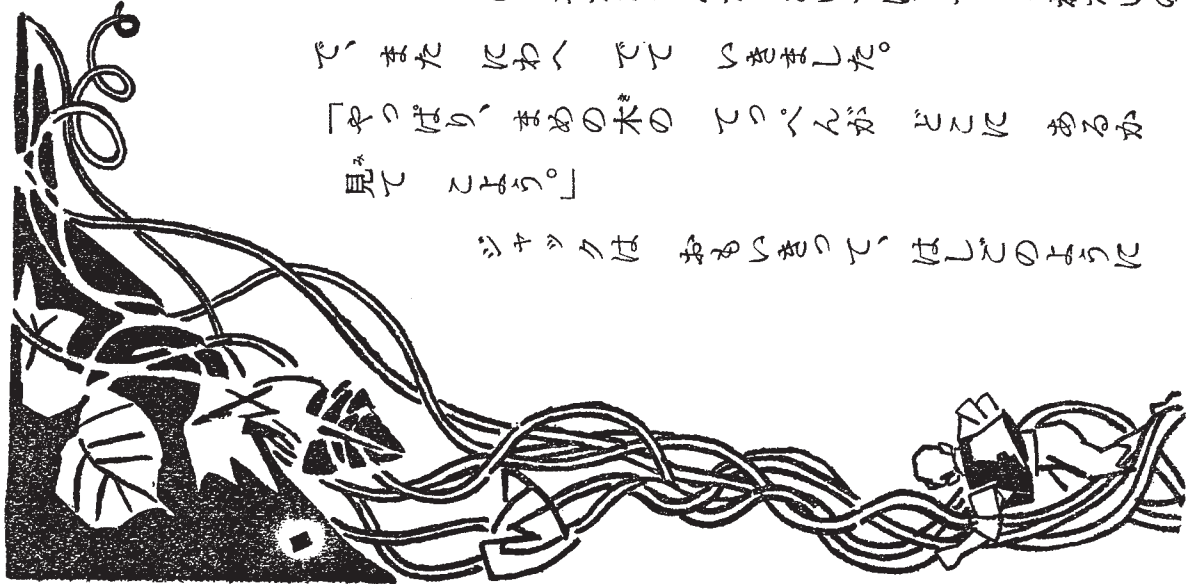 で、また にわへ でて いきました。
「やっぱり、まめの木の てっぺんが どこに あるか
見て こよう。」
ジャックは おもいきって、はしごのように